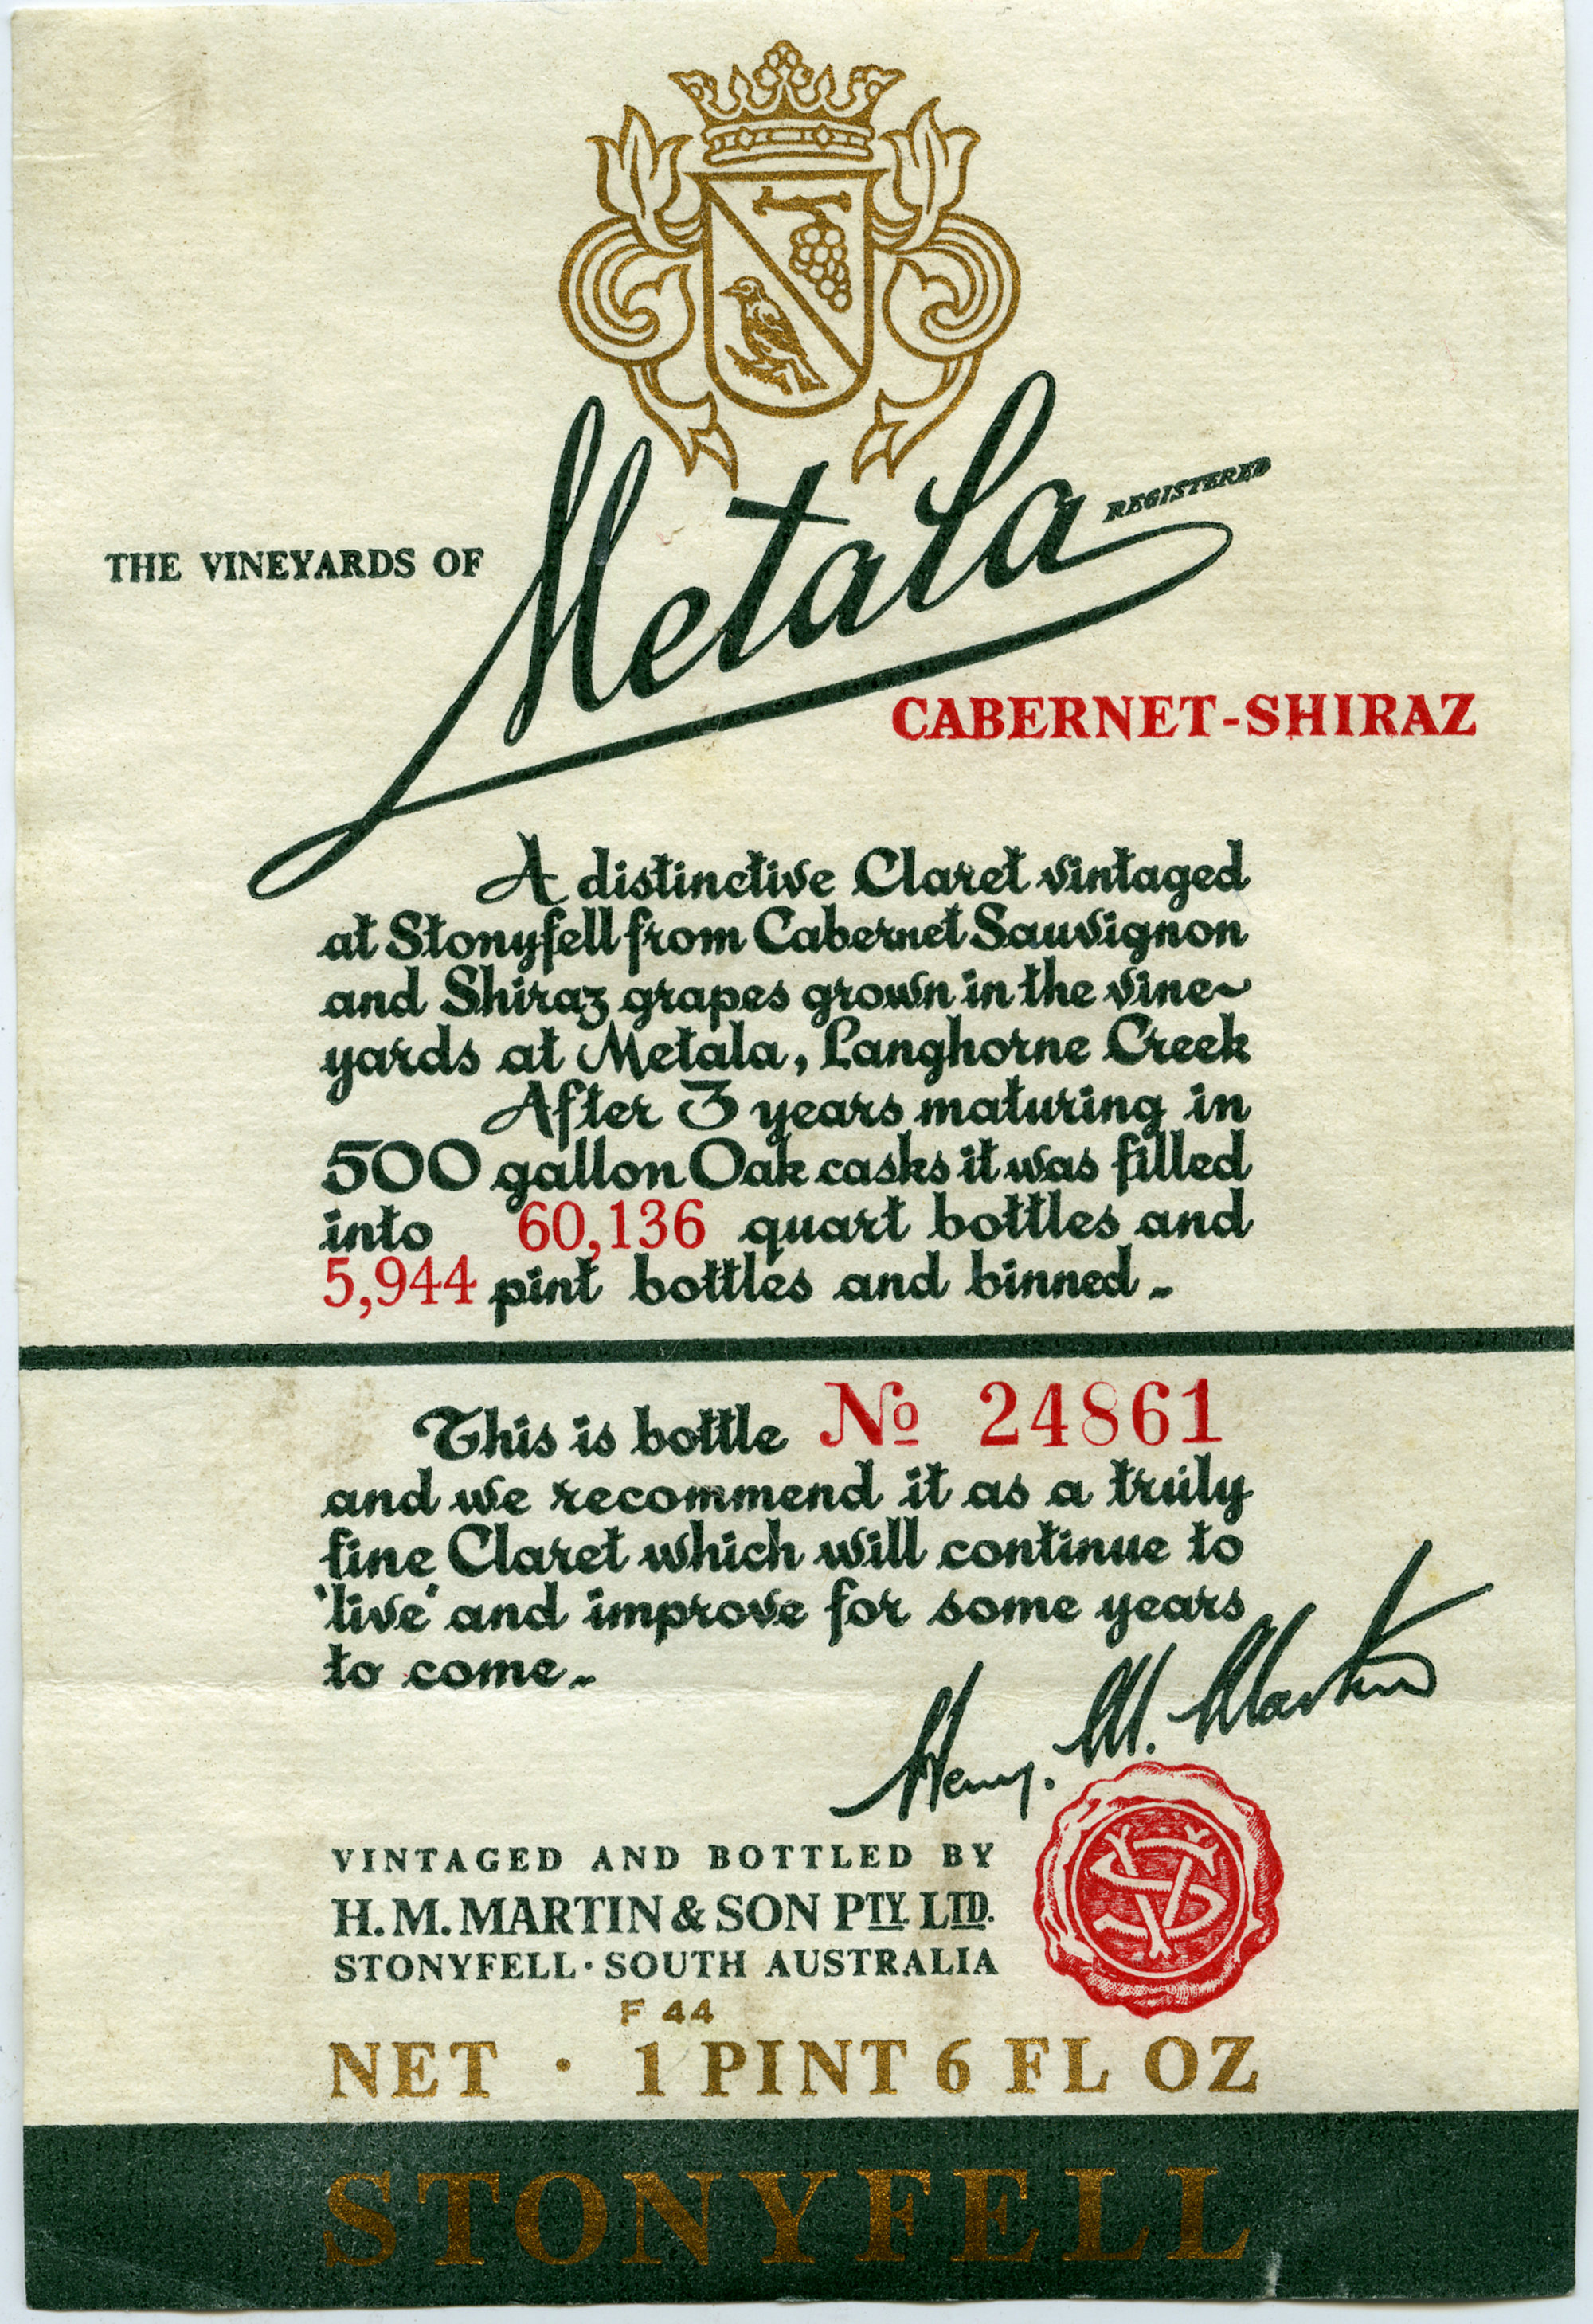 THE VINEYARDS OF
Metala
REGISTERED
CABERNET-SHIRAZ
A distinctive Claret vintaged
at Stonyfell from Cabernet Sauvignon
and Shiraz grapes grown in the vine-
yards at Metala, Langhorne Creek
After 3 years maturing in
500 gallon Oak casks it was filled
into 60,136 quart bottles and
5,944 pint bottles and binned.
This is bottle No 24861
and we recommend it as a truly
fine Claret which will continue to
'live' and improve for some years
to come.
Henry. M. Martin
VINTAGED AND BOTTLED BY
H. M. MARTIN & SON PTY. LTD.
STONYFELL · SOUTH AUSTRALIA
F 44
NET · 1 PINT 6 FL OZ
STONYFELL